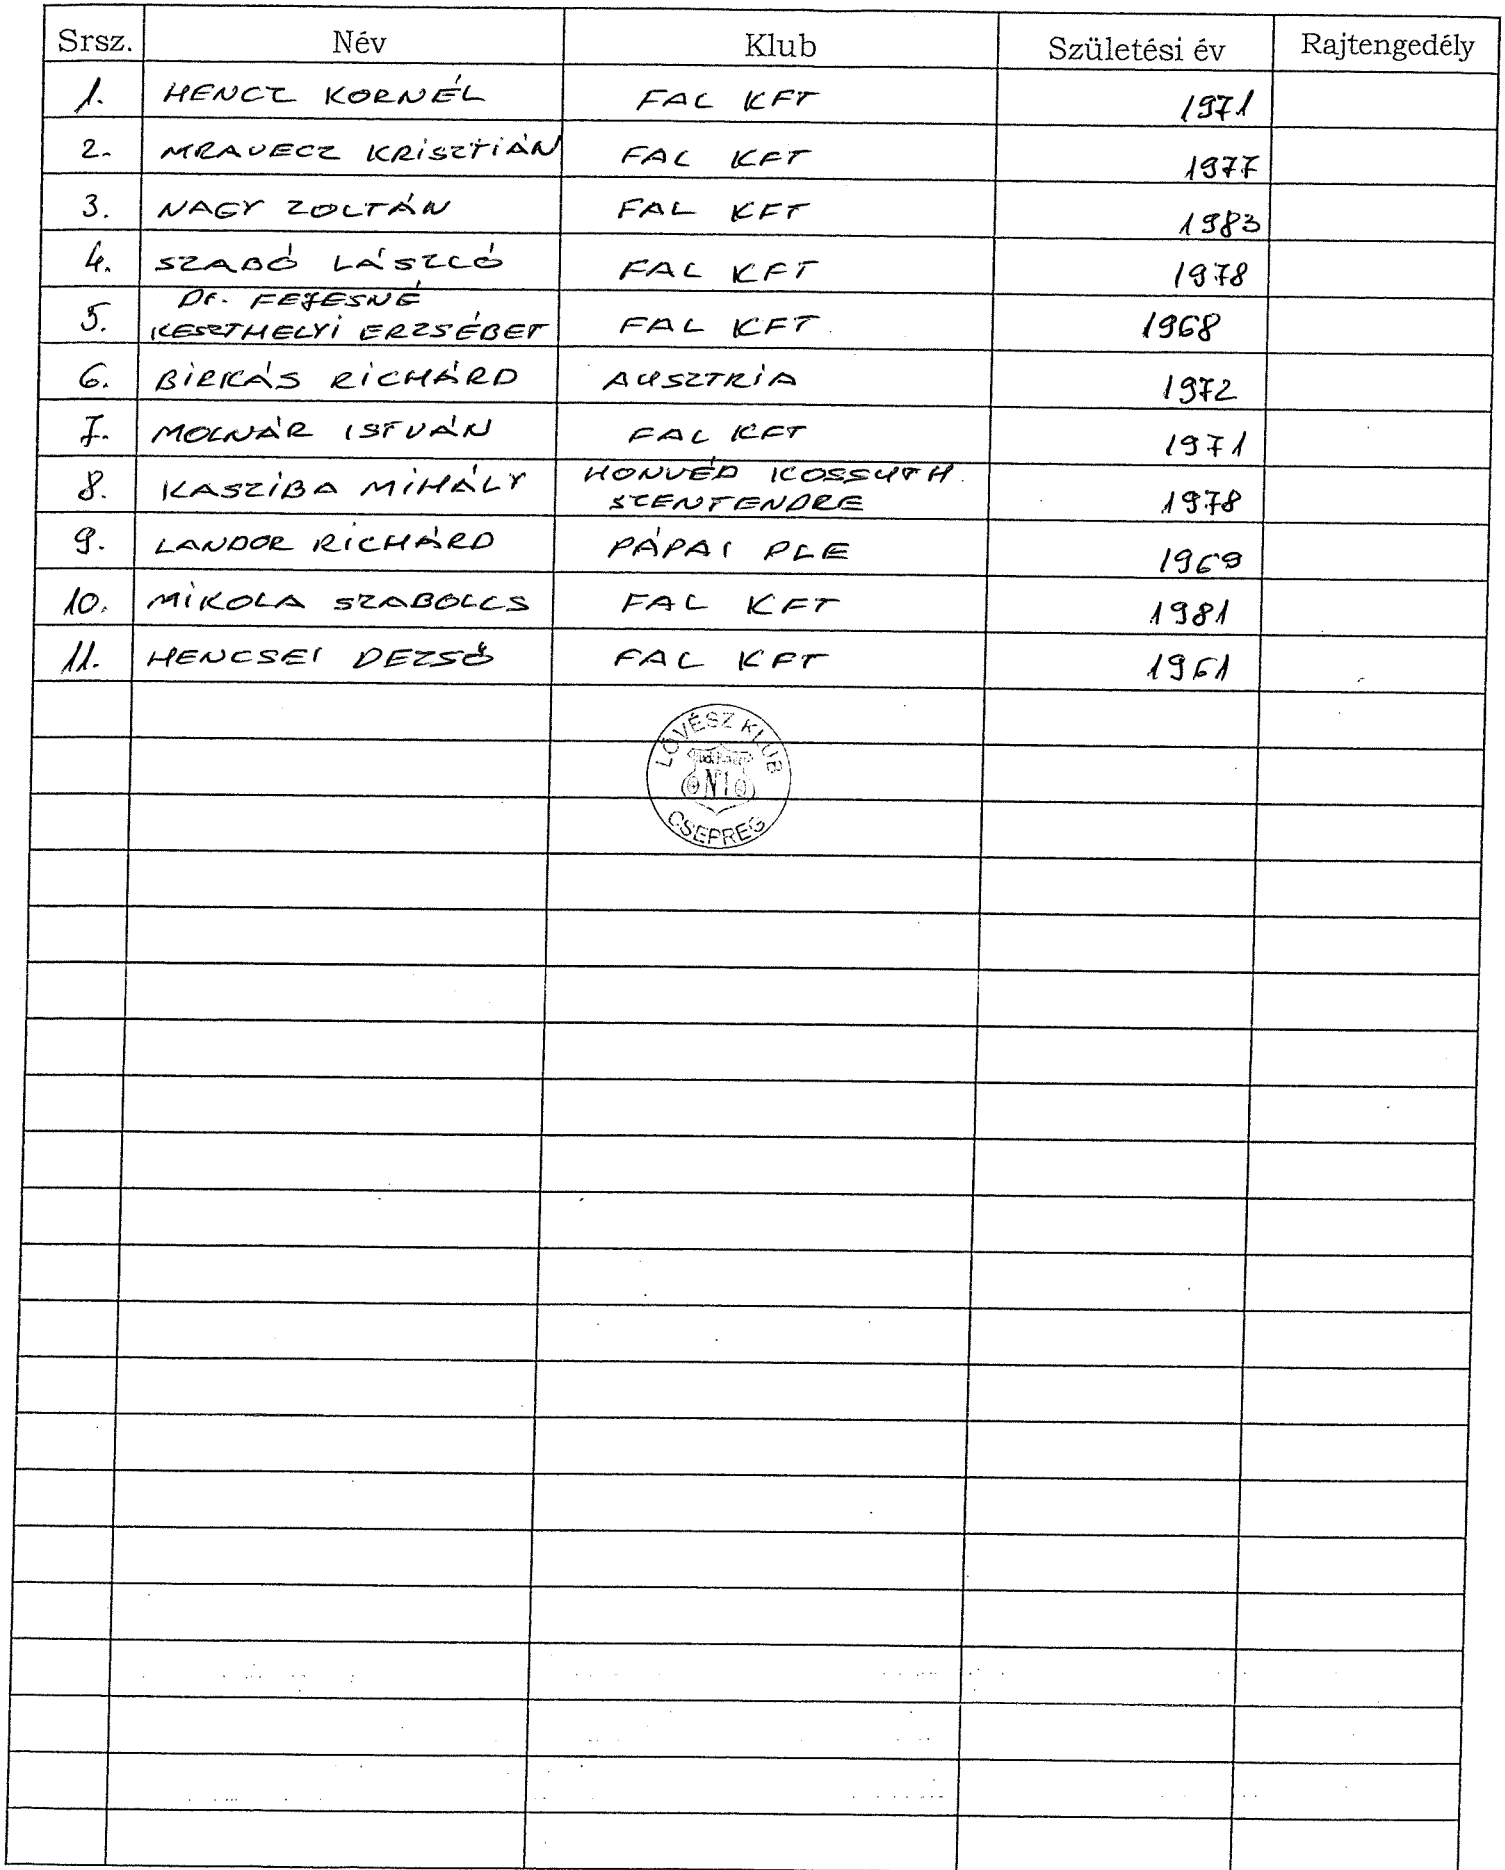 Srsz. Név Klub Születési év Rajtengedély
1. HENCZ KORNÉL FAL KFT 1971
2. MRAVECZ KRISZTIÁN FAL KFT 1977
3. NAGY ZOLTÁN FAL KFT 1983
4. SZABÓ LÁSZLÓ FAL KFT 1978
Dr. FEJESNÉ
5. KESZTHELYI ERZSÉBET FAL KFT 1968
6. BIRKÁS RICHÁRD AUSZTRIA 1972
7. MOLNÁR ISTVÁN FAL KFT 1971
8. KASZIBA MIHÁLY HONVÉD KOSSUTH 1978
SZENTENDRE
9. LANDOR RICHÁRD PÁPAI PLE 1969
10. MIKOLA SZABOLCS FAL KFT 1981
11. HENCSEI DEZSŐ FAL KFT 1961
LÖVÉSZ KLUB
N1
CSEPREG